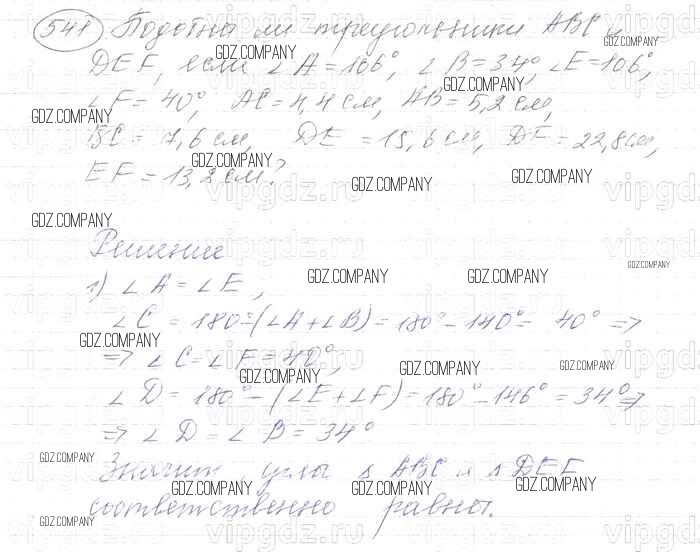 541 Подобны ли треугольники ABC и
DEF, если ∠A = 106°, ∠B = 34°, ∠E = 106°,
∠F = 40°, AC = 4,4 см, AB = 5,2 см,
BC = 7,6 см, DE = 15,6 см, DF = 22,8 см,
EF = 13,2 см?
Решение
1) ∠A = ∠E,
∠C = 180° - (∠A + ∠B) = 180° - 140° = 40° =>
=> ∠C = ∠F = 40°,
∠D = 180° - (∠E + ∠F) = 180° - 146° = 34° =>
=> ∠D = ∠B = 34°
Значит углы ΔABC и ΔDEF
соответственно равны.